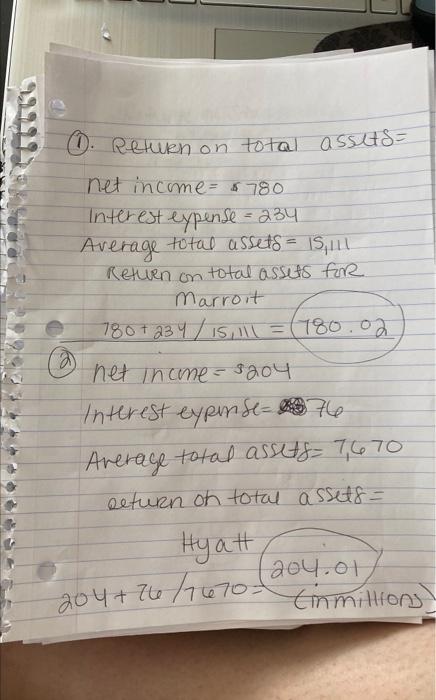 ①. Return on total assets=
net income= $780
Interest expense = 234
Average total assets= 15,111
Return on total assets for
Marroit
780+234/15,111 = 780.02
② net income = $204
Interest expense= 76
Average total assets= 7,670
return on total assets=
Hyatt
204+76/7670= 204.01
(in millions)